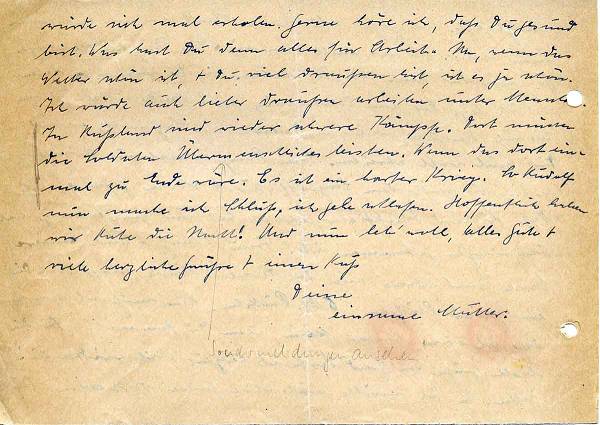 würde sich mal erholen. Gerne höre ich, daß Du gesund
bist. Was hast Du denn alles für Arbeit. Na, wenn das
Wetter schön ist, + Du viel draußen bist, ist es ja schön.
Ich würde auch lieber draußen arbeiten unter
In Rußland sind wieder schwere Kämpfe. Dort müssen
die Soldaten Übermenschliches leisten. Wenn das dort ein-
mal zu Ende wäre. Es ist ein harter Krieg. So Rudolf
nun mache ich Schluß, ich gehe schlafen. Hoffentlich haben
wir Ruhe die Nacht! Und nun leb' wohl, alles Gute +
viele herzliche Grüße + einen Kuß
Deine
einsame Mutter.
Sondermeldungen ansehen